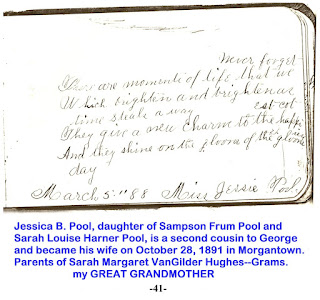 Never forget
There are moments of life that we
Which brighten and brighten as
time steals a way
They give a new charm to the happiest lot
And they shine on the gloom of the gloomiest
day
March 5" 88 Miss Jessie Pool.
Jessica B. Pool, daughter of Sampson Frum Pool and
Sarah Louise Harner Pool, is a second cousin to George
and became his wife on October 28, 1891 in Morgantown.
Parents of Sarah Margaret VanGilder Hughes--Grams.
my GREAT GRANDMOTHER
-41-